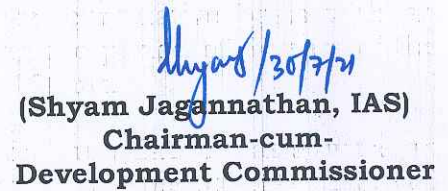 Shyam/30/7/21
(Shyam Jagannathan, IAS)
Chairman-cum-
Development Commissioner